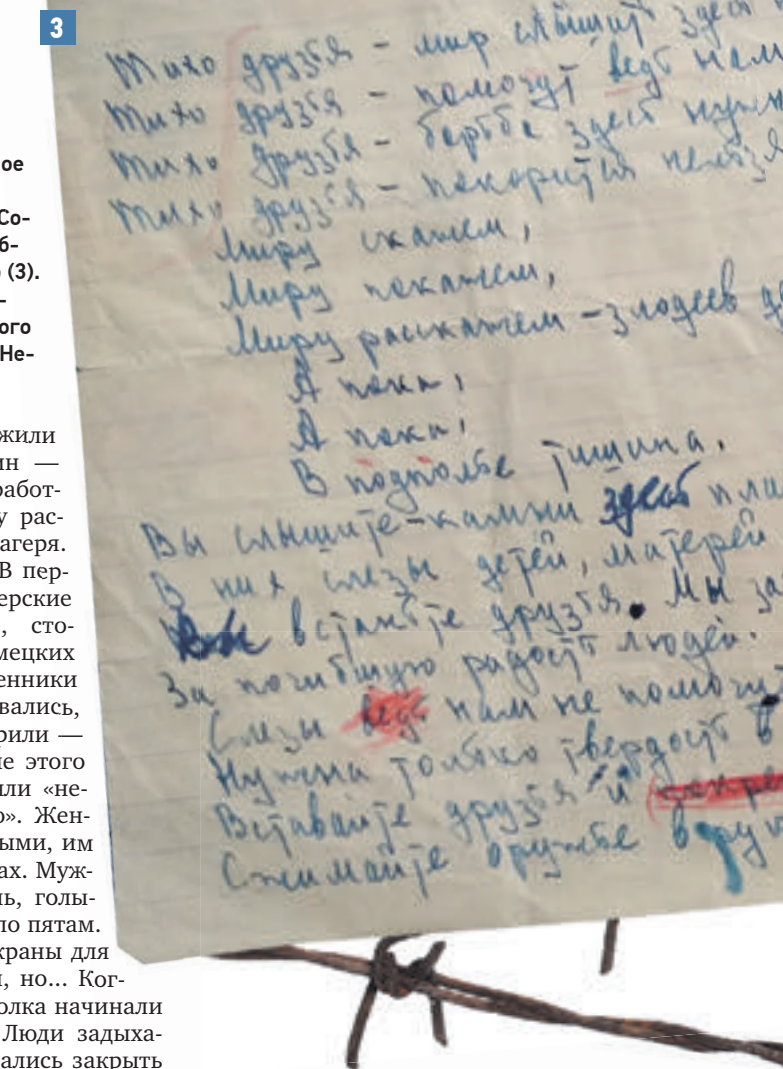 3
ое
Со-
б-
(3).
-
ого
Не-
жили
ин —
работ-
у рас-
агеря.
В пер-
ерские
, сто-
мецких
енники
вались,
рили —
ие этого
или «не-
о». Жен-
ыми, им
ах. Муж-
нь, голы-
по пятам.
краны для
и, но... Ког-
олка начинали
Люди задыха-
ались закрыть
Тихо друзья – мир слышит здесь
Тихо друзья – помогут ведь нам
Тихо друзья – борьба здесь нужн
Тихо друзья – покорится нельзя
Миру скажем,
Миру покажем,
Миру расскажем – злодеев
А пока,
А пока,
В подполье тишина.
Вы слышите – камни здесь пла
В них слезы детей, матерей
встаньте друзья. Мы за
За погибшую радость людей.
Слезы ведь нам не помогут
Нужна только твердость в
Вставайте друзья и
Сжимайте оружье в рук